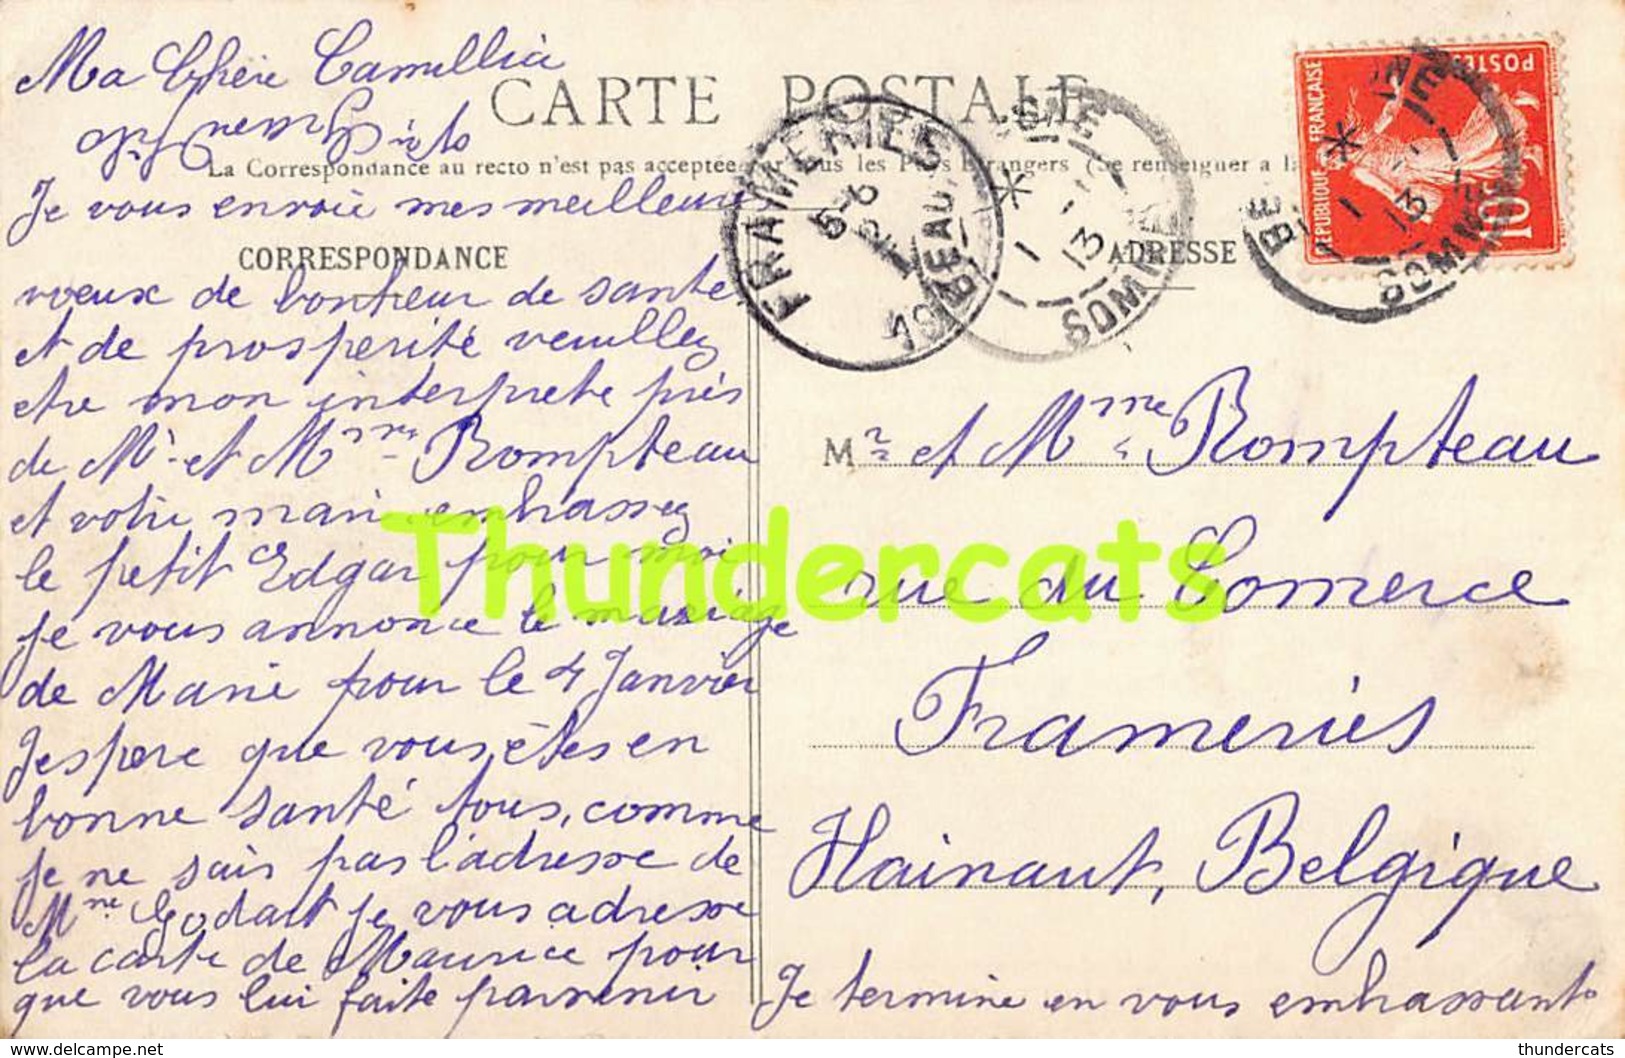 Ma Chère Camellia
CARTE POSTALE
La Correspondance au recto n'est pas acceptée par tous les Pays Etrangers (Se renseigner a la
Je vous envoie mes meilleurs
CORRESPONDANCE
voeux de bonheur de sante
et de prosperité veuillez
etre mon interprete près
de Mr et Mme Rompteau
et votre mari embrassez
le petit Edgar pour moi
je vous annonce le mariage
de Marie pour le 4 Janvier
J'espere que vous êtes en
bonne santé tous, comme
je ne sais pas l'adresse de
Mme Godart je vous adresse
la carte de Maurice pour
que vous lui faite parvenir
Je termine en vous embrassant
ADRESSE
Mr et Mme Rompteau
rue du Comerce
Frameries
Hainaut, Belgique
FRAMERIES
SOMME
13
SOMME
13
REPUBLIQUE FRANÇAISE
POSTES
10
Thundercats
www.delcampe.net
thundercats